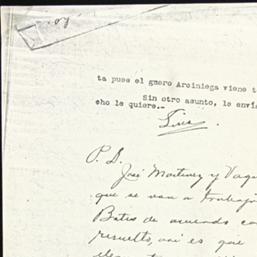 ta pues el guero Arciniega viene t
Sin otro asunto, le enví
cho le quiere.-
Luis
P. D.
José Martinez y Vaq
que se van a trabaj
Bates de acuerdo co
resuelto, así es que